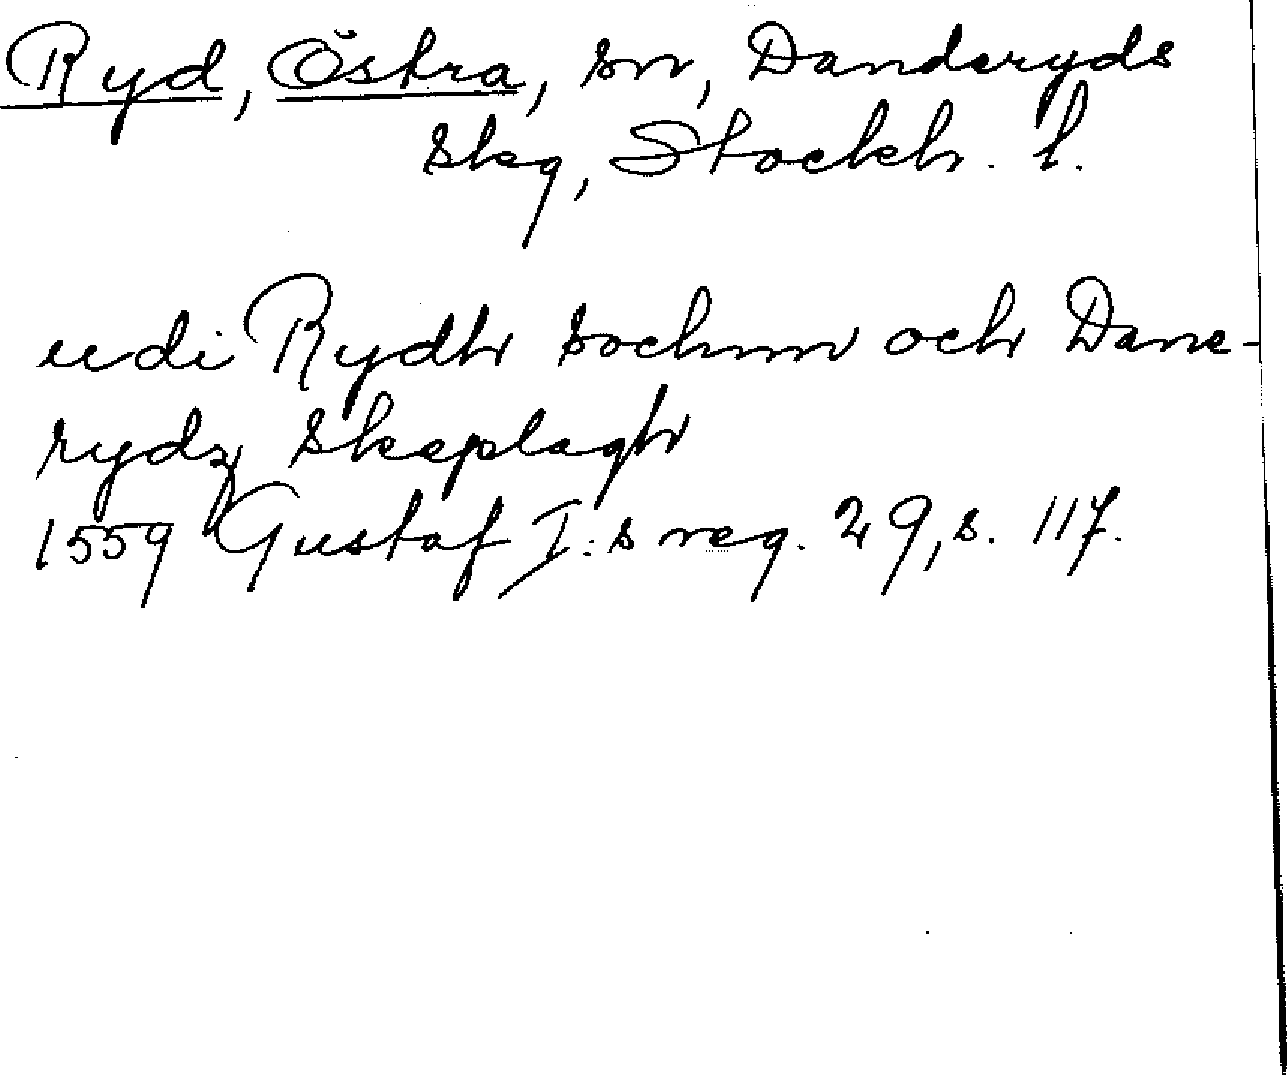 Ryd, Östra, sn, Danderyds
skg, Stockh. l.
udi Rydh sochnn och Dane-
rydz skeplagh
1559 Gustaf I:s reg. 29, s. 117.